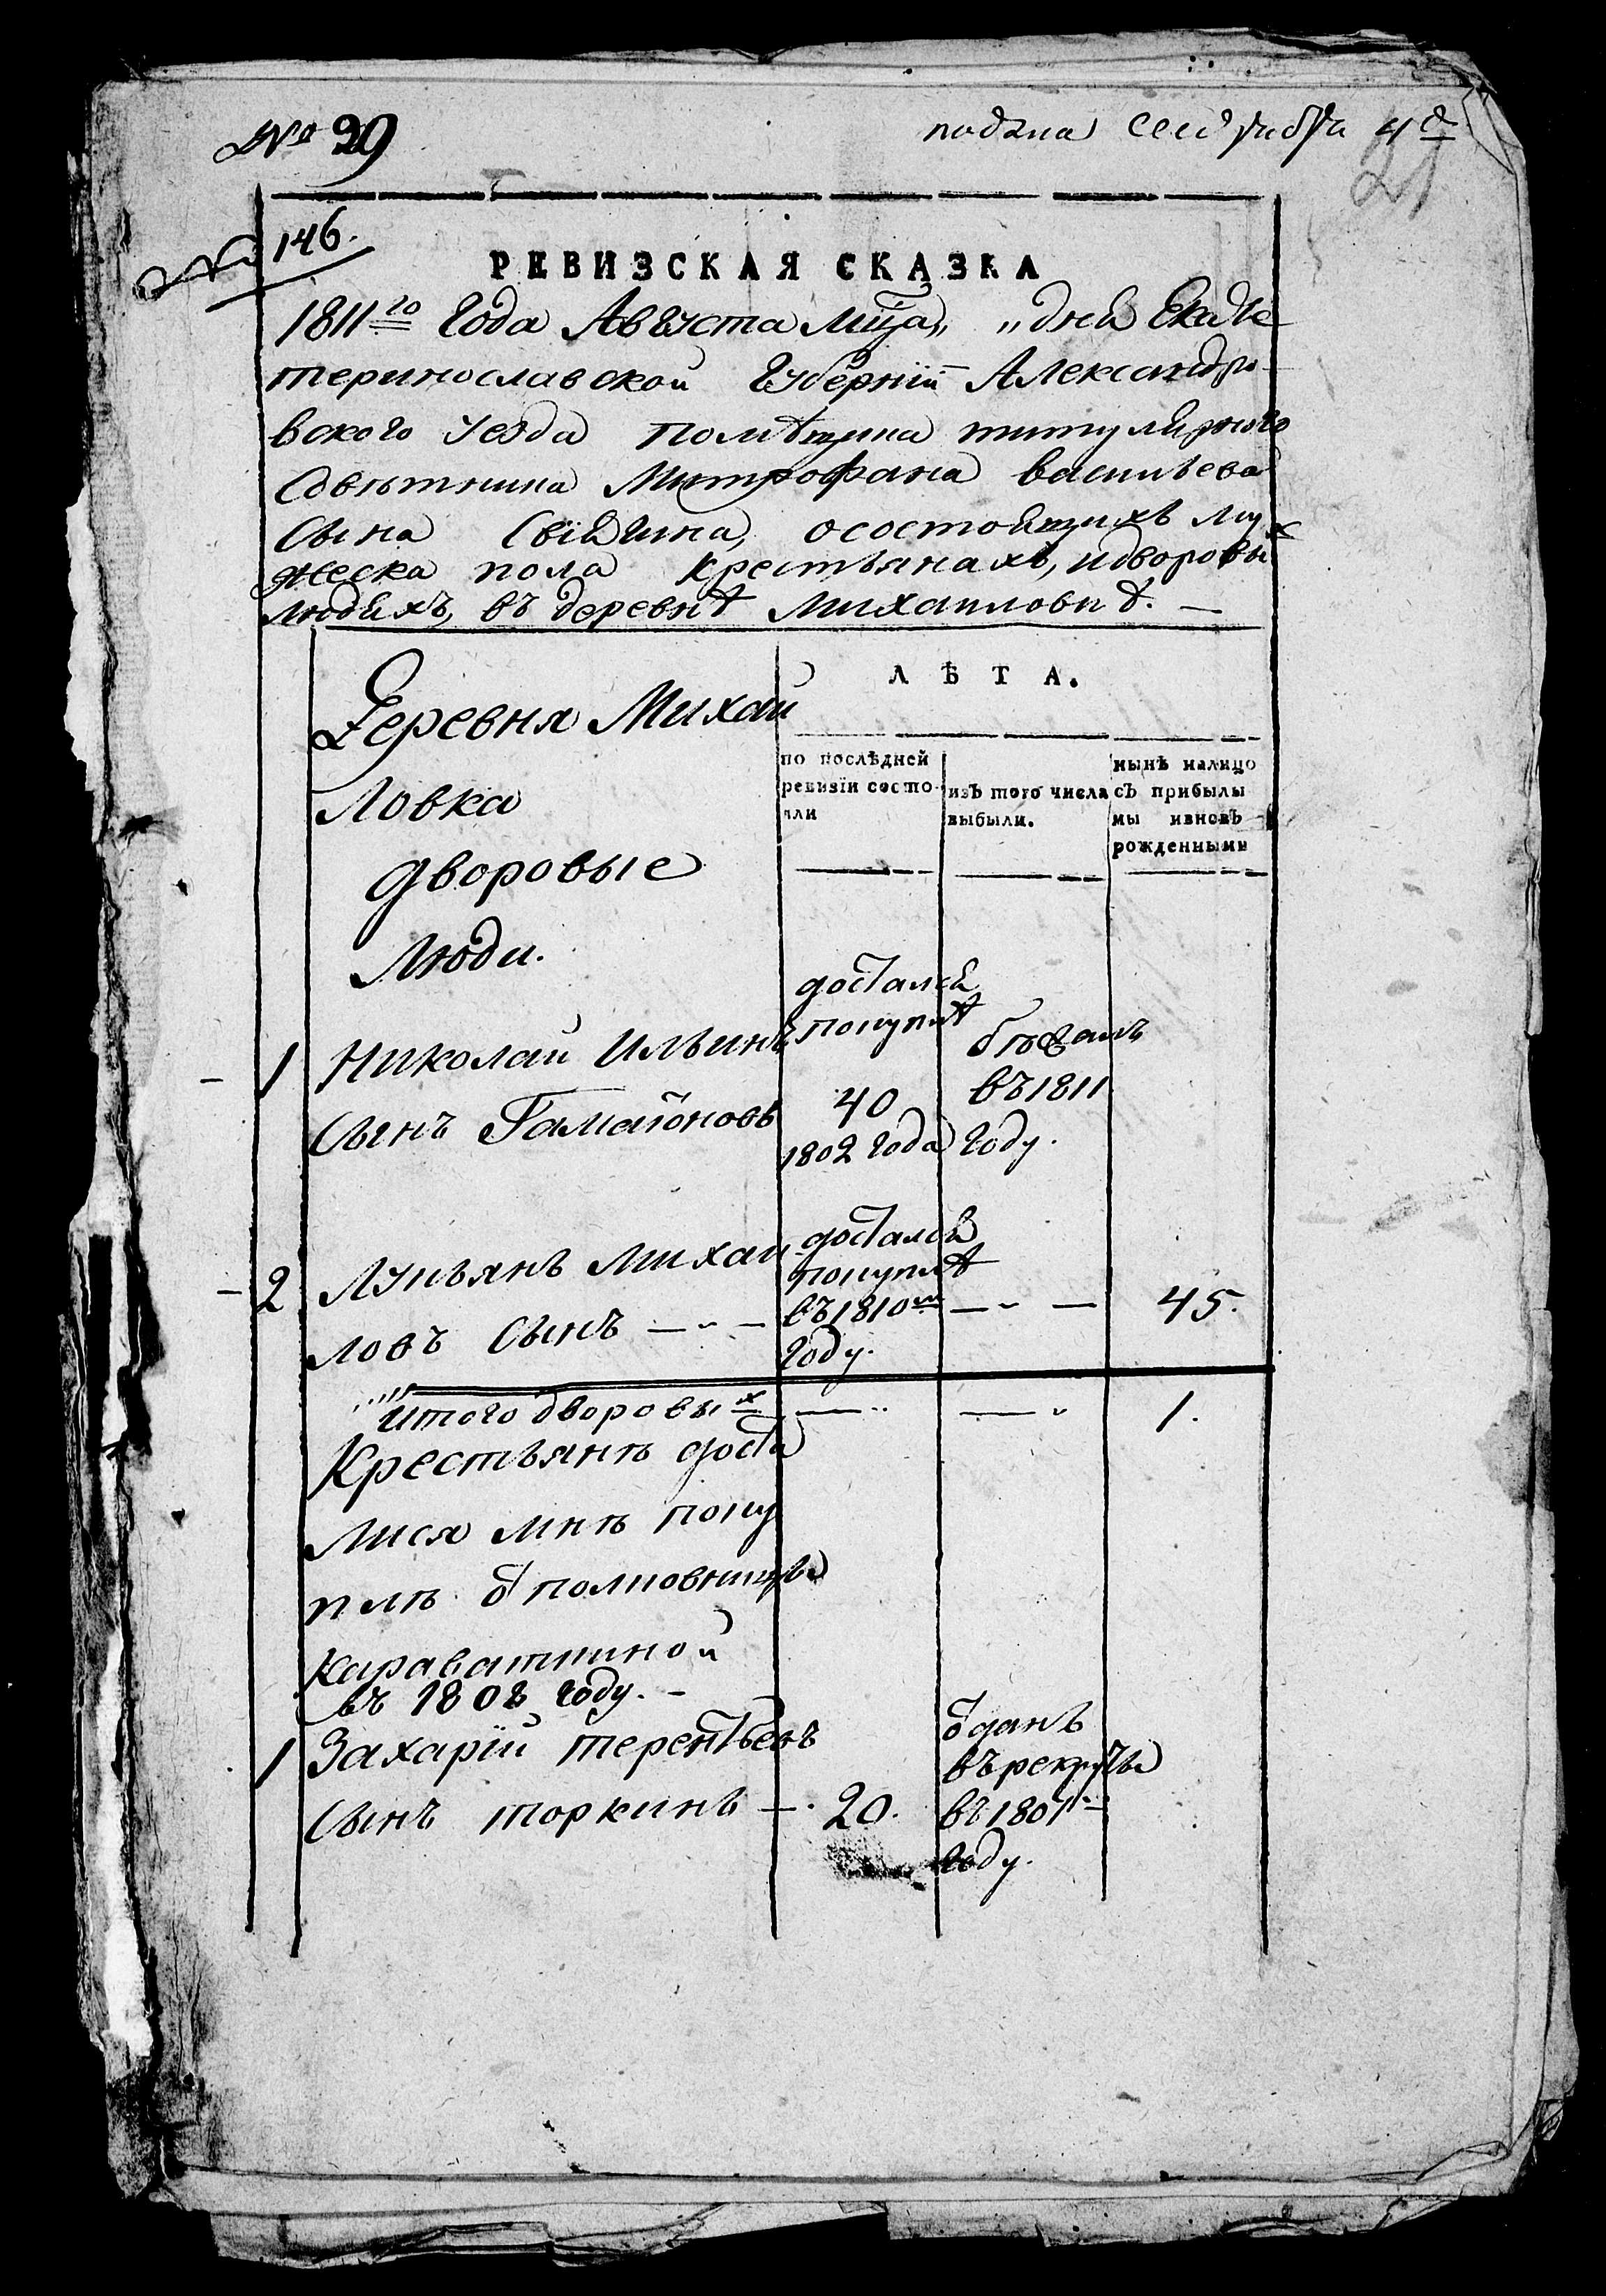 № 29
подана Сентября 4
21
№ 146.
РЕВИЗСКАЯ СКАЗКА
1811го Года Августа Мца „ „ дня Екате
теринославской Губернїи Александро
вского уезда помѣщика титулярного
Совѣтника Митрофана Васильева
Сына осостоящихъ му
жеска пола крестьянахъ, идворовых
людяхъ, въ деревнѣ Михаиловкѣ. —
Деревня Михай
ловка
дворовые
Люди.
ЛѢТА.
по послѣдней
ревизїи состо-
яли
изъ того числа
выбыли.
нынѣ налицо
съ прибылы
ми ивновь
рожденными
1 Николай Ильинъ
Сынъ Гамаюновъ
достался
покупкѣ
40
1802 года
бѣжалъ
въ 1811
Году.
2 Лукьянъ Михаи
ловъ Сынъ — „ —
достался
покупкѣ
въ 1810м
Году.
— „ —
45.
итого дворовых — „ — „ 1.
Крестьянъ доста
лися мнѣ поку
пкѣ от полковницы
Караваткиной
въ 1808 Году. —
1 Захарїй Терентьевъ
Сынъ Торкинъ — 20.
отданъ
въ рекруты
въ 1801м
Году.